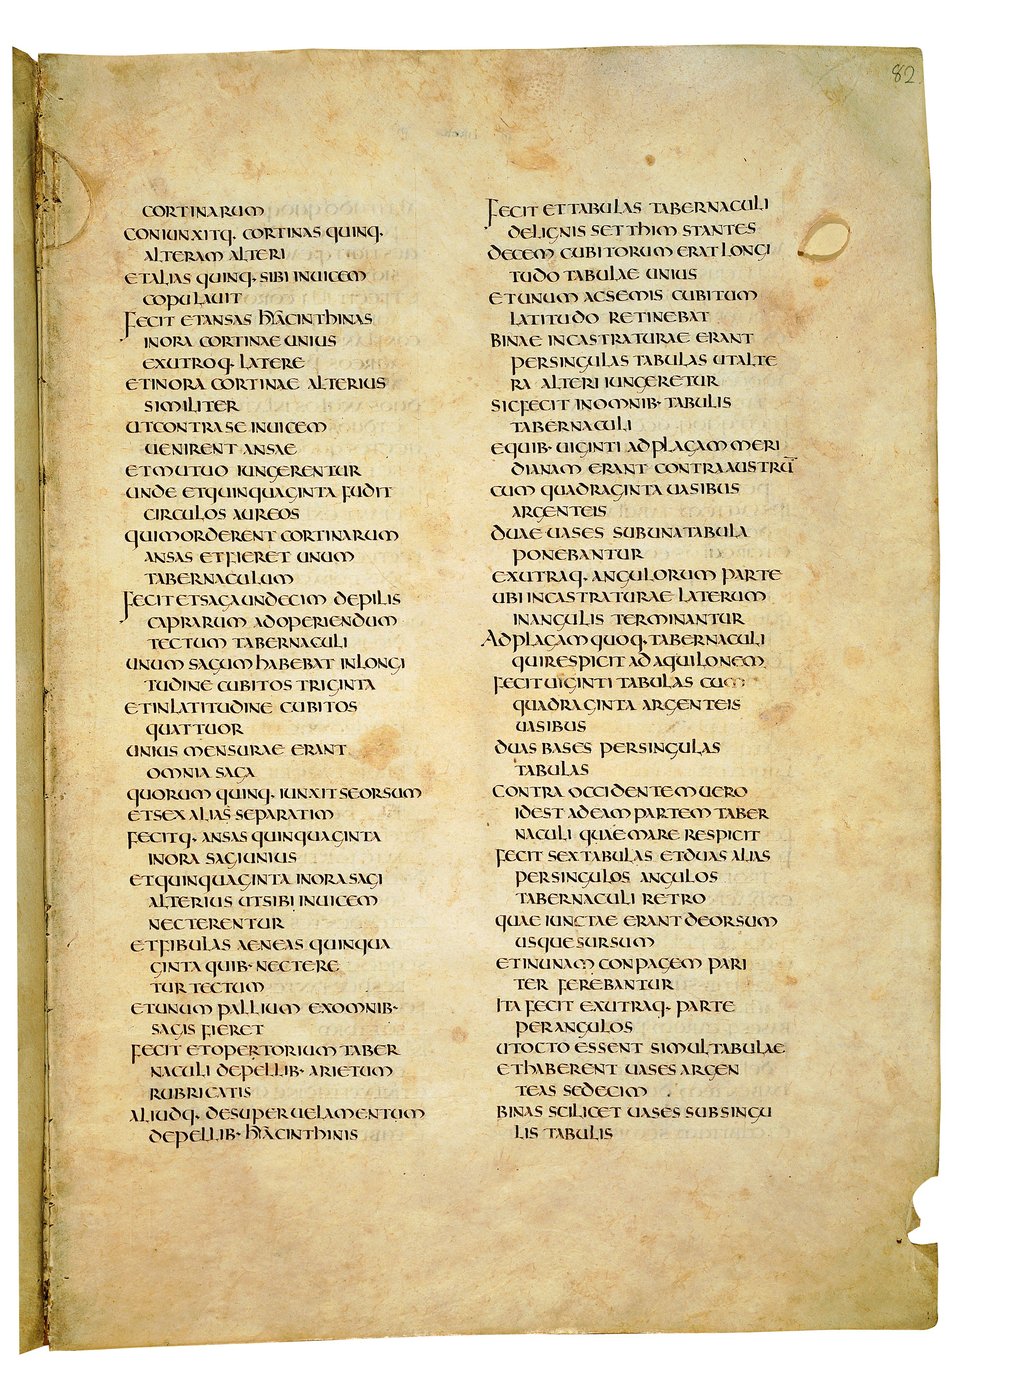 82
CORTINARUM
CONIUNXITQ· CORTINAS QUINQ·
ALTERAM ALTERI
ET ALIAS QUINQ· SIBI INUICEM
COPULAUIT
FECIT ET ANSAS HYACINTHINAS
IN ORA CORTINAE UNIUS
EX UTROQ· LATERE
ET IN ORA CORTINAE ALTERIUS
SIMILITER
UT CONTRA SE INUICEM
UENIRENT ANSAE
ET MUTUO IUNGERENTUR
UNDE ET QUINQUAGINTA FUDIT
CIRCULOS AUREOS
QUI MORDERENT CORTINARUM
ANSAS ET FIERET UNUM
TABERNACULUM
FECIT ET SAGA UNDECIM DE PILIS
CAPRARUM AD OPERIENDUM
TECTUM TABERNACULI
UNUM SAGUM HABEBAT IN LONGI
TUDINE CUBITOS TRIGINTA
ET IN LATITUDINE CUBITOS
QUATTUOR
UNIUS MENSURAE ERANT
OMNIA SAGA
QUORUM QUINQ· IUNXIT SEORSUM
ET SEX ALIAS SEPARATIM
FECITQ· ANSAS QUINQUAGINTA
IN ORA SAGI UNIUS
ET QUINQUAGINTA IN ORA SAGI
ALTERIUS UT SIBI INUICEM
NECTERENTUR
ET FIBULAS AENEAS QUINQUA
GINTA QUIB· NECTERE
TUR TECTUM
ET UNUM PALLIUM EX OMNIB·
SAGIS FIERET
FECIT ET OPERTORIUM TABER
NACULI DE PELLIB· ARIETUM
RUBRICATIS
ALIUDQ· DESUPER UELAMENTUM
DE PELLIB· HYACINTHINIS
FECIT ET TABULAS TABERNACULI
DE LIGNIS SETTHIM STANTES
DECEM CUBITORUM ERAT LONGI
TUDO TABULAE UNIUS
ET UNUM AC SEMIS CUBITUM
LATITUDO RETINEBAT
BINAE INCASTRATURAE ERANT
PER SINGULAS TABULAS UT ALTE
RA ALTERI IUNGERETUR
SIC FECIT IN OMNIB· TABULIS
TABERNACULI
E QUIB· UIGINTI AD PLAGAM MERI
DIANAM ERANT CONTRA AUSTRŪ
CUM QUADRAGINTA UASIBUS
ARGENTEIS
DUAE UASES SUB UNA TABULA
PONEBANTUR
EX UTRAQ· ANGULORUM PARTE
UBI INCASTRATURAE LATERUM
IN ANGULIS TERMINANTUR
AD PLAGAM QUOQ· TABERNACULI
QUI RESPICIT AD AQUILONEM
FECIT UIGINTI TABULAS CUM
QUADRAGINTA ARGENTEIS
UASIBUS
DUAS BASES PER SINGULAS
TABULAS
CONTRA OCCIDENTEM UERO
ID EST AD EAM PARTEM TABER
NACULI QUAE MARE RESPICIT
FECIT SEX TABULAS ET DUAS ALIAS
PER SINGULOS ANGULOS
TABERNACULI RETRO
QUAE IUNCTAE ERANT DEORSUM
USQUE SURSUM
ET IN UNAM CONPAGEM PARI
TER FEREBANTUR
ITA FECIT EX UTRAQ· PARTE
PER ANGULOS
UT OCTO ESSENT SIMUL TABULAE
ET HABERENT UASES ARGEN
TEAS SEDECIM
BINAS SCILICET UASES SUB SINGU
LIS TABULIS